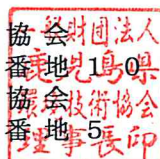 協会
番地10
協会
番地5
一般財団法人
鹿児島県
環境技術協会
理事長印